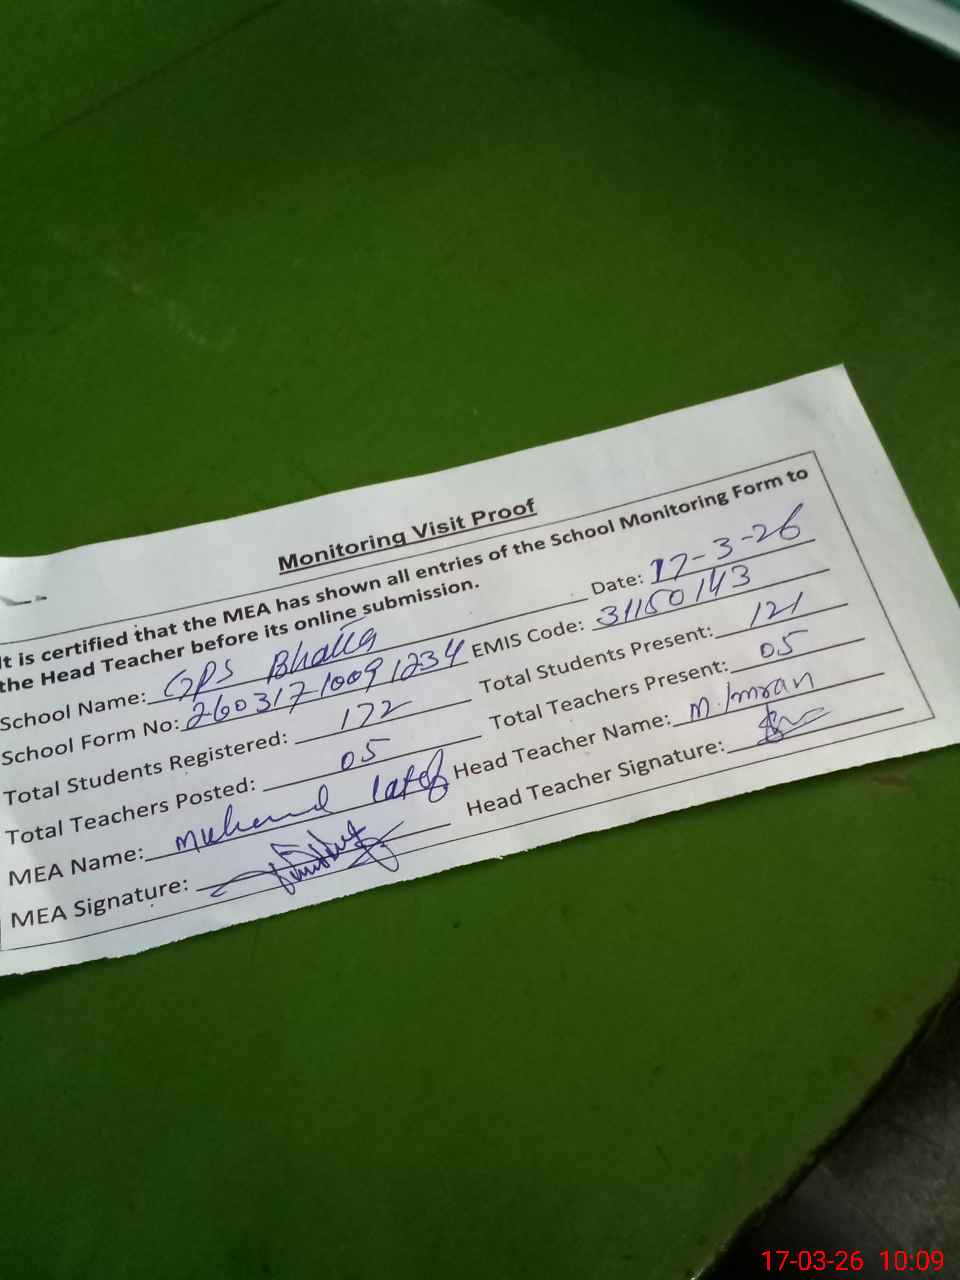 Monitoring Visit Proof
It is certified that the MEA has shown all entries of the School Monitoring Form to
the Head Teacher before its online submission.
School Name: GPS Bhalla Date: 17-3-26
School Form No: 26031710091234 EMIS Code: 31150143
Total Students Registered: 172 Total Students Present: 121
Total Teachers Posted: 05 Total Teachers Present: 05
MEA Name: Latef Head Teacher Name: M. Imran
MEA Signature: Head Teacher Signature:
17-03-26 10:09